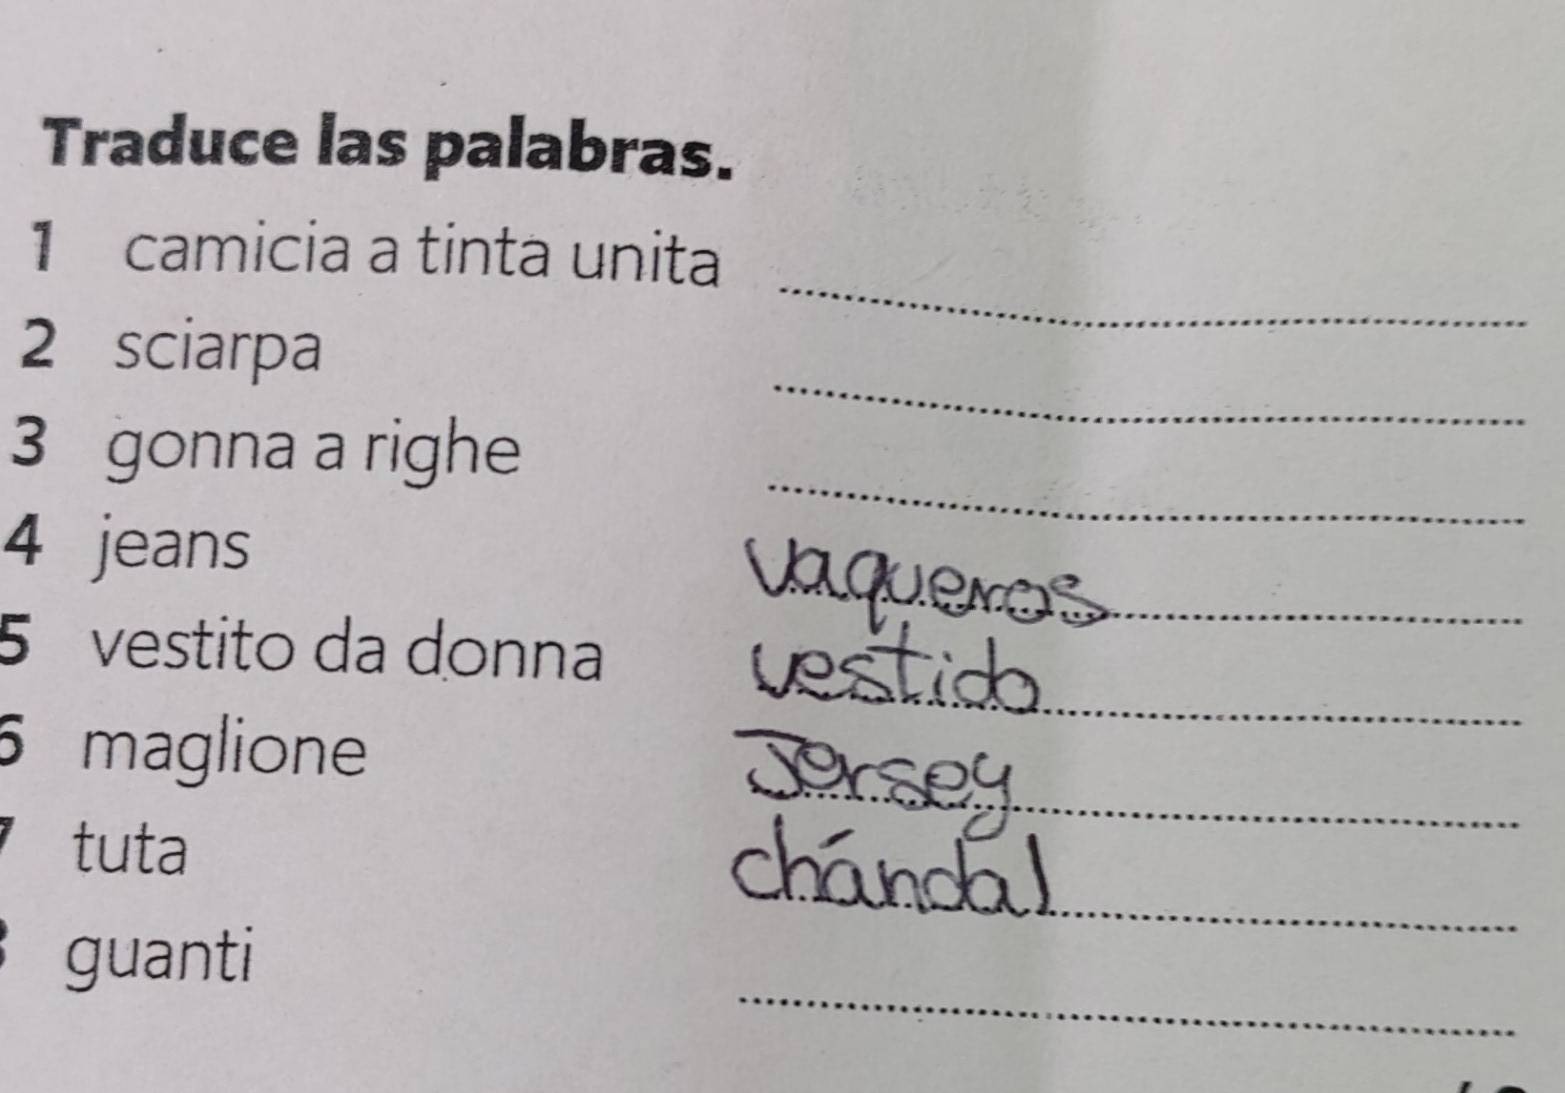 Traduce las palabras.
1 camicia a tinta unita
2 sciarpa
3 gonna a righe
4 jeans vaqueros
5 vestito da donna vestido
6 maglione Jersey
7 tuta chándal
8 guanti